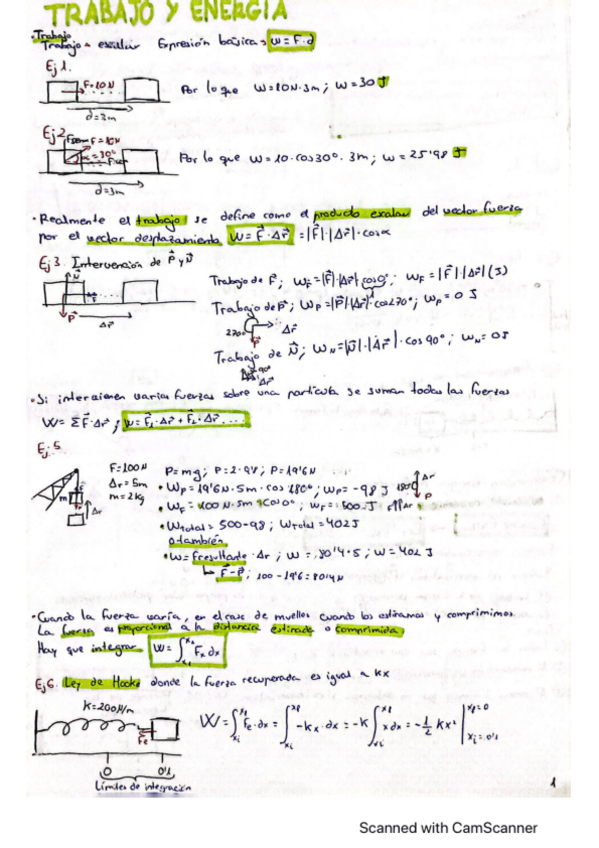 TRABAJO Y ENERGIA
• Trabajo
Trabajo → escalar Expresión básica → W = F · d
Ej 1.
F=10N
d=3m
Por lo que W=10N·3m ; W=30 J
Ej 2
F=10N
α=30º
d=3m
Por lo que W=10·cos30º·3m ; W=25'98 J
• Realmente el trabajo se define como el producto escalar del vector fuerza
por el vector desplazamiento W=F⃗·Δr⃗ =|F⃗|·|Δr⃗|·cosα
Ej 3. Intervención de P⃗ y N⃗
N⃗
F
P⃗
Δr⃗
Trabajo de F⃗ ; W_F=|F⃗|·|Δr⃗| cos0º ; W_F=|F⃗|·|Δr⃗| (J)
Trabajo de P⃗ ; W_P=|P⃗|·|Δr⃗|·cos270º ; W_P= 0 J
270º
Δr⃗
P⃗
Trabajo de N⃗ ; W_N=|N⃗|·|Δr⃗|·cos 90º ; W_N= 0J
90º
Δr⃗
• Si intervienen varias fuerzas sobre una partícula se suman todas las fuerzas
W= ΣF⃗·Δr⃗ ; W=F⃗₁·Δr⃗ + F⃗₂·Δr⃗ ....
Ej. 5
m
Δr⃗
F=100N
Δr=5m
m=2kg
P=mg ; P=2·9'8 ; P=19'6N
• W_P=19'6N·5m·cos180º ; W_P= -98 J
180º
Δr⃗
P
• W_F=100N·5m·Cos0º ; W_F=500 J
• W_total=500-98 ; W_total=402J
o también
• W=F resultante·Δr ; W=80'4·5 ; W=402 J
F-P ; 100-19'6=80'4N
• Cuando la fuerza varía, en el caso de muelles cuando los estiramos y comprimimos.
La fuerza es proporcional a la distancia estirada o comprimida
Hay que integrar W=∫ₓ₁ˣ² Fₓ dx
Ej 6. Ley de Hooke donde la fuerza recuperada es igual a kx
K=200N/m
Fe
W=∫ₓᵢˣᶠ Fe·dx=∫ₓᵢˣᶠ -Kx·dx= -K∫ₓᵢˣᶠ xdx= -1/2 Kx² | xf=0 xi=0'1
0 0'1
Límites de integración
1
Scanned with CamScanner